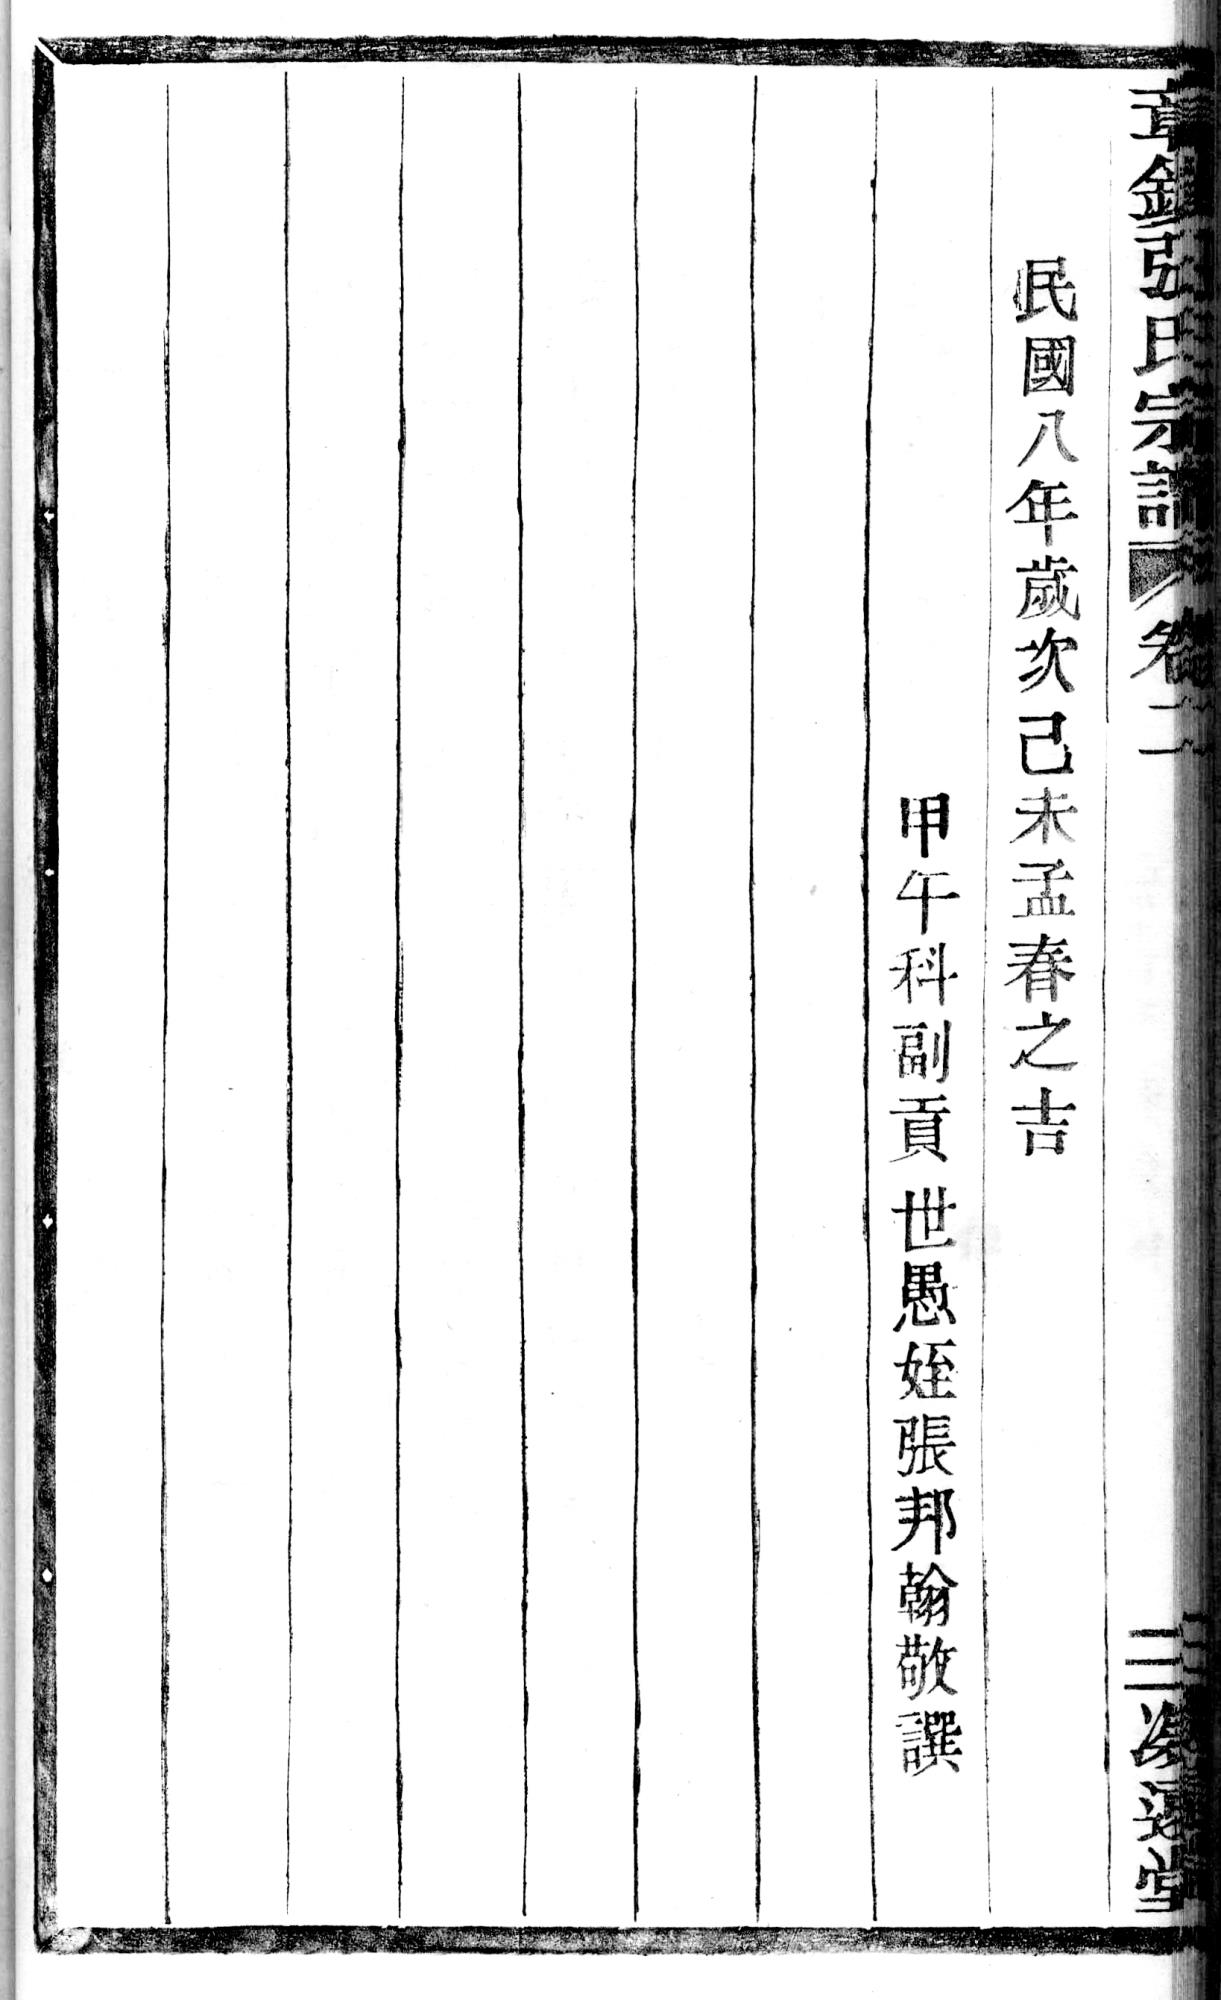 張氏宗譜 卷二 三
民國八年歲次己未孟春之吉
甲午科副貢世愚姪張邦翰敬譔